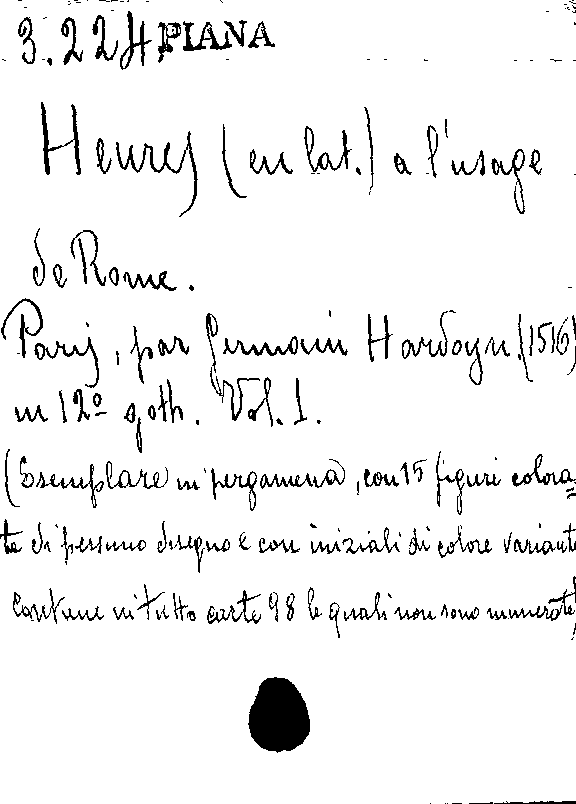 3.224. PIANA
Heures (en lat.) a l'usage
de Rome.
Paris, par Germain Hardoyn. (1516)
in 12º goth. Vol. 1.
(Esemplare in pergamena, con 15 figuri colora=
te di pessimo disegno e con iniziali di colore variante
Contiene in tutto carte 98 le quali non sono numerate)